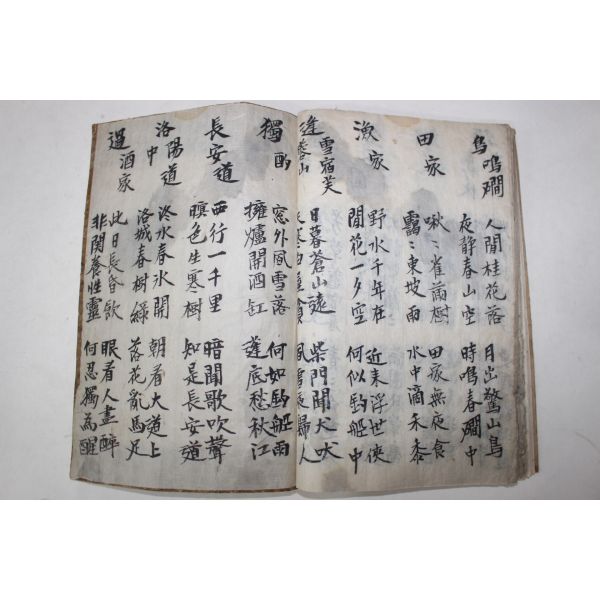 鳥鳴澗
人間桂花落
夜靜春山空
月出驚山鳥
時鳴春澗中
田家
啾〻雀滿樹
靄〻東坡雨
田家無夜食
水中摘禾黍
漁家
野水千年在
閒花一夕空
近來浮世俠
何似釣船中
逢
雪宿芙
蓉山
日暮蒼山遠
天寒白屋貧
柴門聞犬吠
風雪夜歸人
獨酌
窓外風雪落
擁爐開酒缸
何如釣船雨
蓬底愁秋江
長安道
西行一千里
暝色生寒樹
暗聞歌吹聲
知是長安道
洛陽道
中
洛水春氷開
洛城春樹綠
朝看大道上
落花亂馬足
過酒家
此日長昏飲
非関養性靈
眼看人盡醉
何忍獨為醒